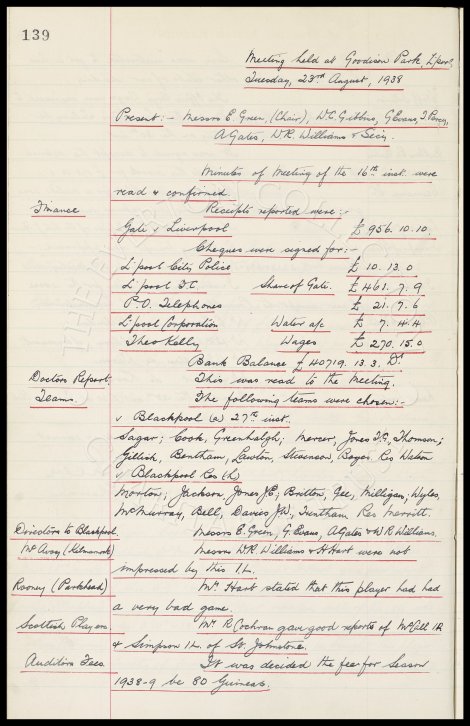 139
Meeting held at Goodison Park, L'pool,
Tuesday, 23rd August, 1938
Present:- Messrs E. Green, (Chair), W.C. Gibbins, G. Evans, J. Percy,
A. Gates, W.R. Williams & Secy.
Minutes of Meeting of the 16th inst. were
read & confirmed.
Finance Receipts reported were:-
Gate v Liverpool £ 956. 10. 10.
Cheques were signed for:-
L'pool City Police £ 10. 13. 0
L'pool F.C. Share of Gate. £ 461. 7. 9
P.O. Telephones £ 21. 17. 6
L'pool Corporation Water a/c £ 7. 4. 4
Theo Kelly Wages £ 270. 15. 0
Bank Balance £40719. 13. 3. Dr
Doctors Report. This was read to the Meeting.
Teams. The following teams were chosen:-
v Blackpool (a) 27th inst.
Sagar; Cook, Greenhalgh; Mercer, Jones T.G, Thomson;
Gillick, Bentham, Lawton, Stevenson, Boyes. Res Watson
v Blackpool Res (h)
Morton; Jackson, Jones J.E; Britton, Gee, Milligan; Wyles,
McMurray, Bell, Davies J.W, Trentham Res Merritt.
Directors to Blackpool. Messrs E. Green, G. Evans, A. Gates & W.R. Williams.
Mc Avoy (Kilmarnock) Messrs W.R. Williams & H. Hart were not
impressed by this I.L.
Rooney (Parkhead) Mr. Hart stated that this player had had
a very bad game.
Scottish Players. Mr R Cochran gave good reports of McCall I.R
& Simpson I.L. of St. Johnstone.
Auditors Fees. It was decided the fee for Season
1938-9 be 80 Guineas.